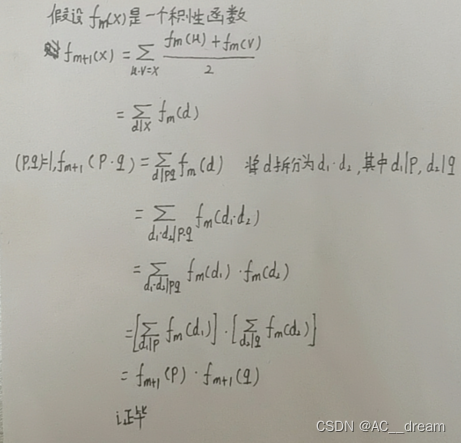 假设 fₘ(x) 是一个积性函数
则 fₘ₊₁(x) = ∑_{u·v=x} (fₘ(u) + fₘ(v))/2
= ∑_{d|x} fₘ(d)
(p,q)=1, fₘ₊₁(p·q) = ∑_{d|pq} fₘ(d) 将d拆分为d₁·d₂,其中d₁|p, d₂|q
= ∑_{d₁·d₂|p·q} fₘ(d₁·d₂)
= ∑_{d₁·d₂|pq} fₘ(d₁)·fₘ(d₂)
= [∑_{d₁|p} fₘ(d₁)]·[∑_{d₂|q} fₘ(d₂)]
= fₘ₊₁(p)·fₘ₊₁(q)
证毕
CSDN @AC__dream